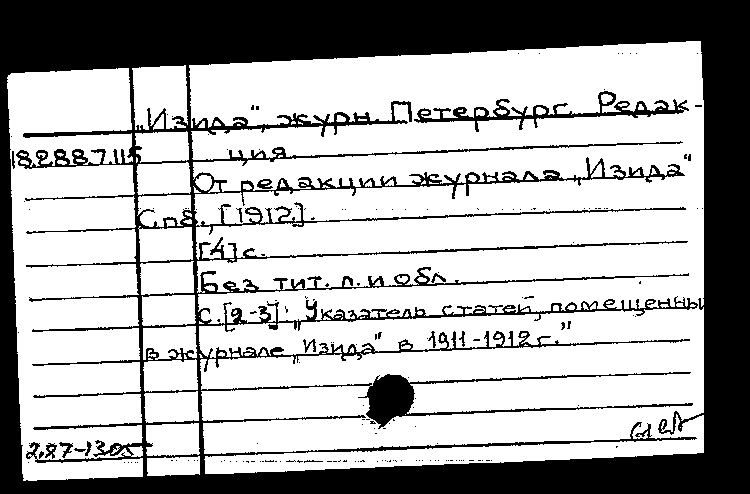 „Изида", журн. Петербург. Редак-
ция.
18.288.7.115
От редакции журнала „Изида"
Спб., [1912].
[4] с.
Без тит. л. и обл.
С. [2-3]: „Указатель статей, помещенны
в журнале „Изида" в 1911-1912 г."
2.87-1305